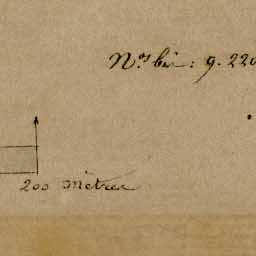 N.os bis: 9. 220
200 mètres